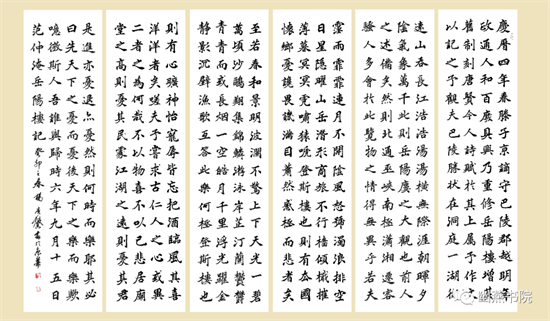 慶曆四年春滕子京謫守巴陵郡越明年
政通人和百廢具興乃重修岳陽樓增其
舊制刻唐賢今人詩賦於其上屬予作文
以記之予觀夫巴陵勝狀在洞庭一湖銜
遠山吞長江浩浩湯湯橫無際涯朝暉夕
陰氣象萬千此則岳陽樓之大觀也前人
之述備矣然則北通巫峽南極瀟湘遷客
騷人多會於此覽物之情得無異乎若夫
霪雨霏霏連月不開陰風怒號濁浪排空
日星隱曜山岳潛形商旅不行檣傾楫摧
薄暮冥冥虎嘯猿啼登斯樓也則有去國
懷鄉憂讒畏譏滿目蕭然感極而悲者矣
至若春和景明波瀾不驚上下天光一碧
萬頃沙鷗翔集錦鱗游泳岸芷汀蘭鬱鬱
青青而或長煙一空皓月千里浮光躍金
靜影沉璧漁歌互答此樂何極登斯樓也
則有心曠神怡寵辱皆忘把酒臨風其喜
洋洋者矣嗟夫予嘗求古仁人之心或異
二者之為何哉不以物喜不以己悲居廟
堂之高則憂其民處江湖之遠則憂其君
是進亦憂退亦憂然則何時而樂耶其必
曰先天下之憂而憂後天下之樂而樂歟
噫微斯人吾誰與歸時六年九月十五日
范仲淹岳陽樓記 癸卯之春 楊 書於京華
幽燕书院